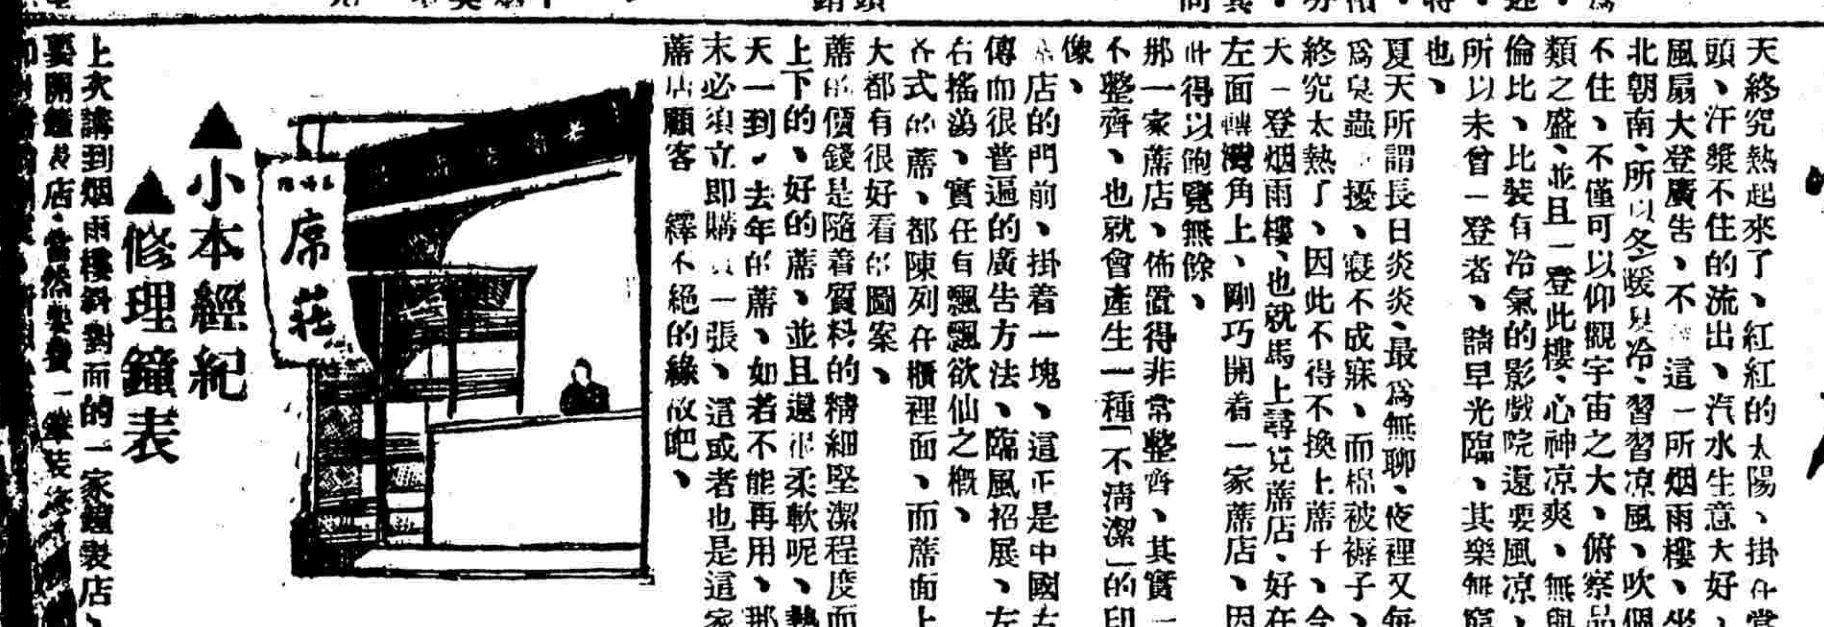 天終究熱起來了、紅紅的太陽、掛在當
頭、汗漿不住的流出、汽水生意大好、
風扇大登廣告、不 這一所烟雨樓、坐
北朝南、所以冬暖夏冷、習習凉風、吹個
不住、不僅可以仰觀宇宙之大、俯察品
類之盛、並且一登此樓、心神凉爽、無與
倫比、比裝有冷氣的影戲院還要風凉、
所以未曾一登者、請早光臨、其樂無窮
也、
夏天所謂長日炎炎、最爲無聊、夜裡又每
爲臭蟲 擾、寢不成寐、而棉被褥子、
終究太熱了、因此不得不換上蓆子、今
天一登烟雨樓、也就馬上尋覓蓆店、好在
左面轉灣角上、剛巧開着一家蓆店、因
此得以飽覽無餘、
那一家蓆店、佈置得非常整齊、其實一
不整齊、也就會產生一種「不清潔」的印
像、
店的門前、掛着一塊、這正是中國古
傳而很普遍的廣告方法、臨風招展、左
右搖蕩、實在有飄飄欲仙之概、
各式的蓆、都陳列在櫃裡面、而蓆面上
大都有很好看的圖案、
蓆的價錢是隨着質料的精細堅潔程度而
上下的、好的蓆、並且還很柔軟呢、熱
天一到、去年的蓆、如若不能再用、那
末必須立即購 一張、這或者也是這家
蓆店顧客 繹不絕的緣故吧、
席莊
▲小本經紀
▲修理鐘表
上次講到烟雨樓斜對面的一家鐘表店、
要開鐘表店、當然要費一筆裝